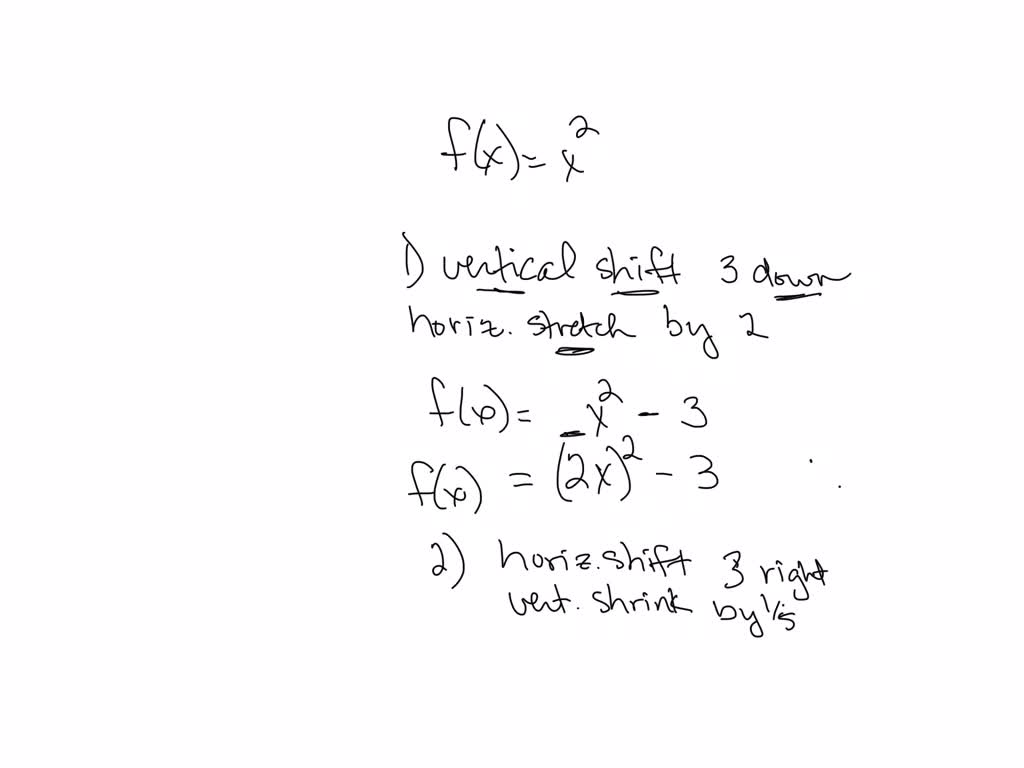 f(x) = x²
1) vertical shift 3 down
horiz. stretch by 2
f(x) = _x² - 3
f(x) = (2x)² - 3
2) horiz. shift 3 right
vert. shrink by 1/5